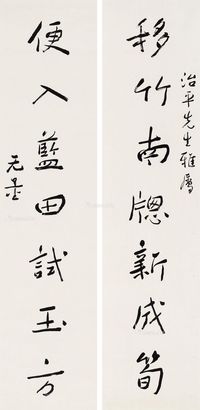 移竹南窗新成筍
治平先生雅屬
便入藍田試玉方
元墨